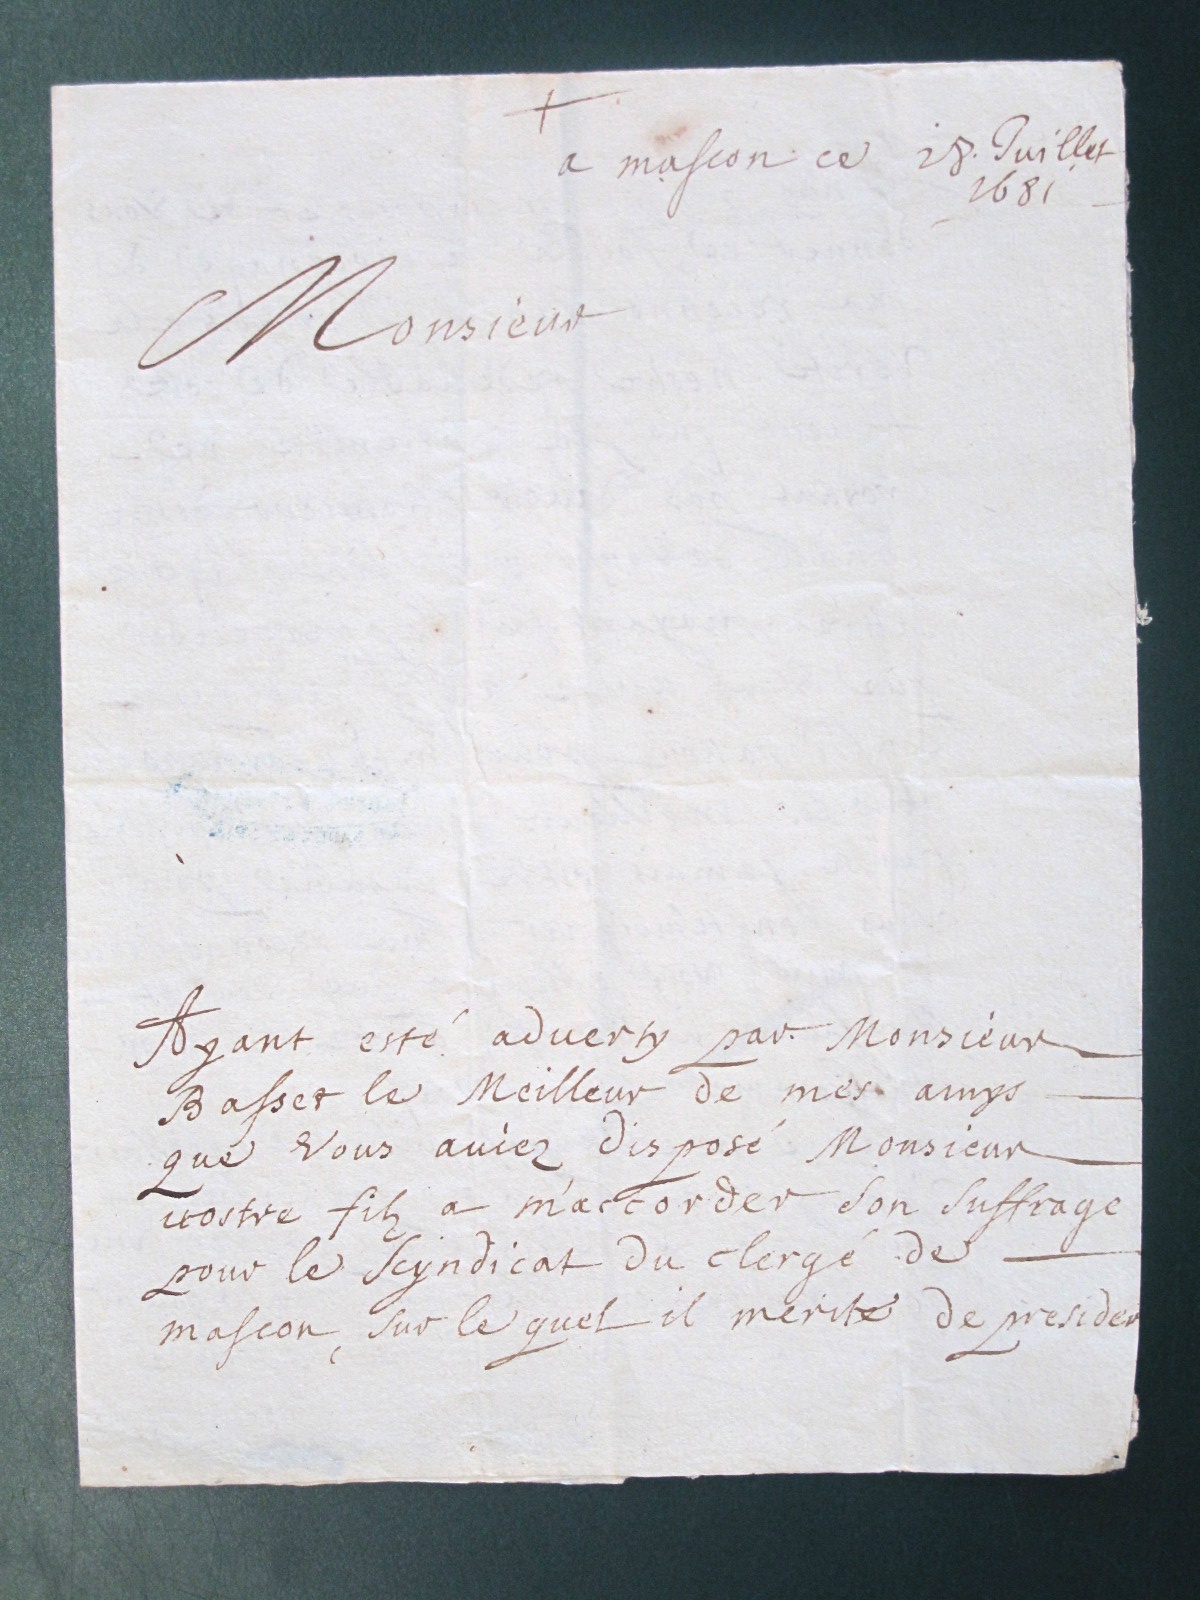 +
a mascon ce 28. Juillet
1681
Monsieur
Ayant esté aduerty par Monsieur
Basset le Meilleur de mes amys
que Vous auiez disposé Monsieur
vostre filz a m'accorder son suffrage
pour le scyndicat du clergé de
mascon, sur le quel il merite de presider